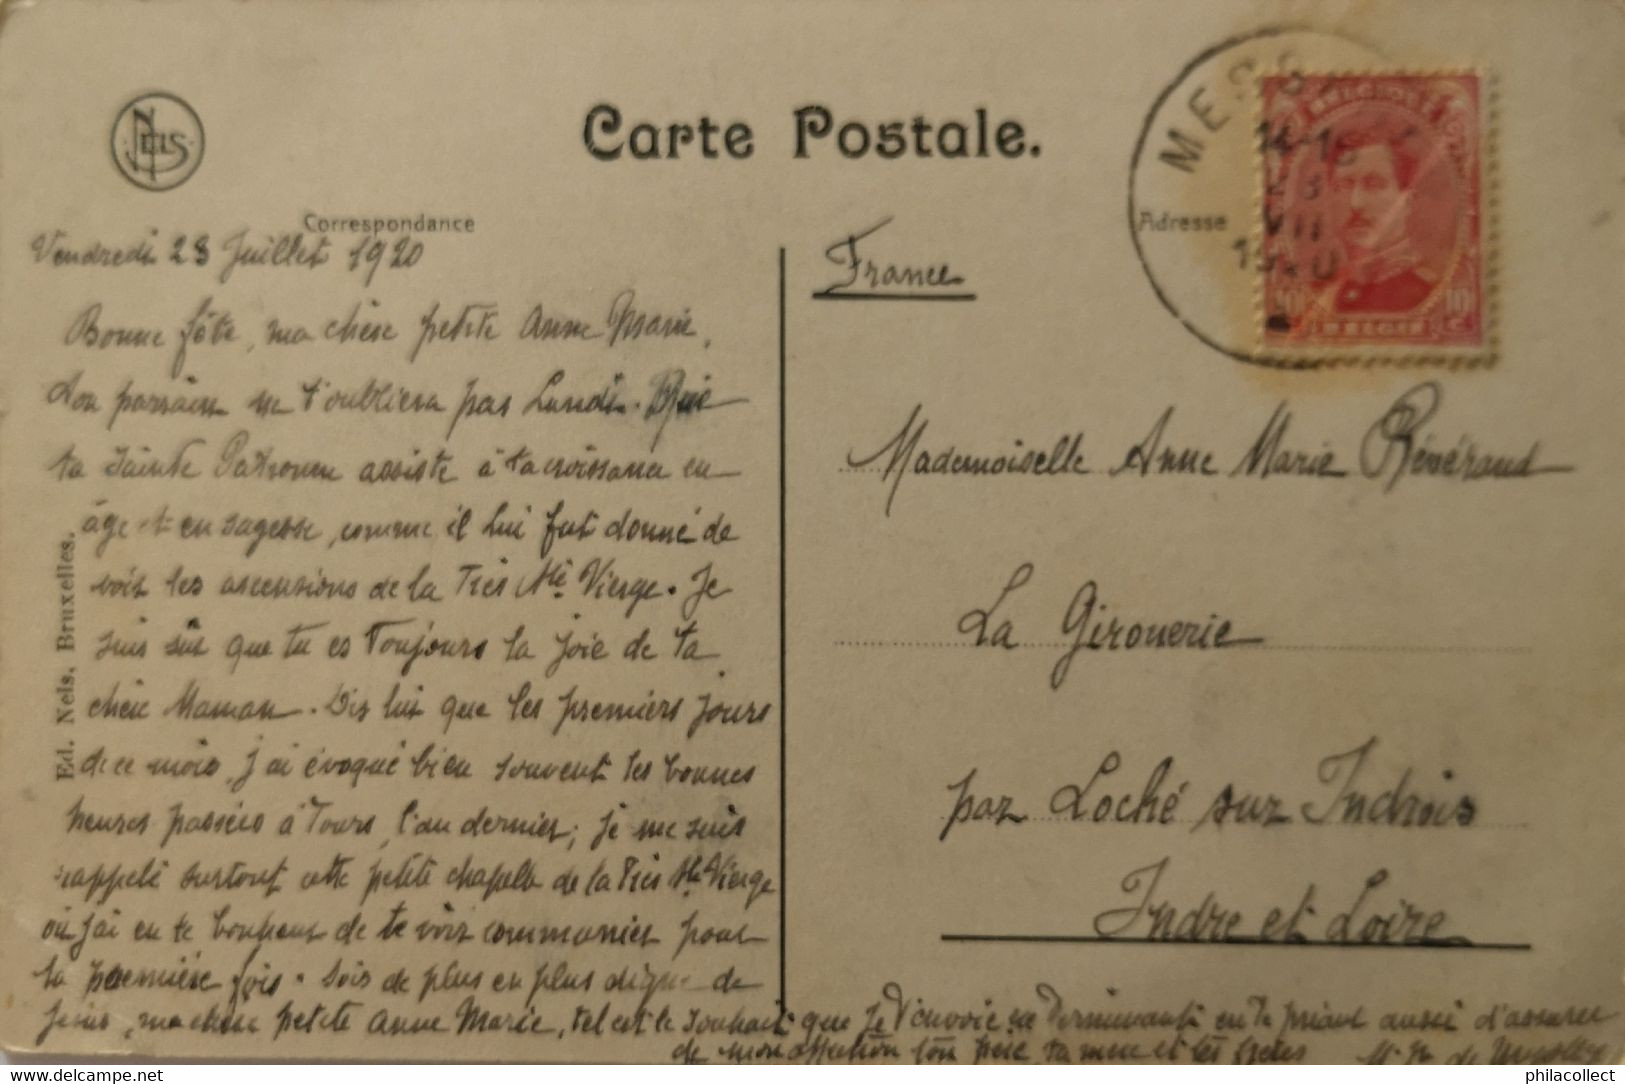 NELS
Carte Postale.
Correspondance
Adresse
MESS
14-15
23
VII
BELGIQUE
10
10
BELGIE
C
Ed. Nels. Bruxelles.
Vendredi 23 Juillet 1920
Bonne fête, ma chère petite Anne Marie,
ton parrain ne t'oubliera pas Lundi. Que
ta Sainte Patronne assiste à ta croissance en
âge et en sagesse, comme il lui fut donné de
voir les ascensions de la Très Ste Vierge. Je
suis sûr que tu es toujours la joie de ta
chère Maman. Dis lui que les premiers jours
de ce mois, j'ai évoqué bien souvent les bonnes
heures passées à Tours, l'an dernier; je me suis
rappelé surtout cette petite chapelle de la Très Ste Vierge
où j'ai eu le bonheur de te voir communier pour
la première fois. Sois de plus en plus digne de
Jésus, ma chère petite Anne Marie, tel est le souhait que je t'envoie en terminant en te priant aussi d'assurer
de mon affection ton père, ta mère et tes frères M. de
France
Mademoiselle Anne Marie Révérand
La Girouerie
par Loché sur Indrois
Indre et Loire
www.delcampe.net
philacollect